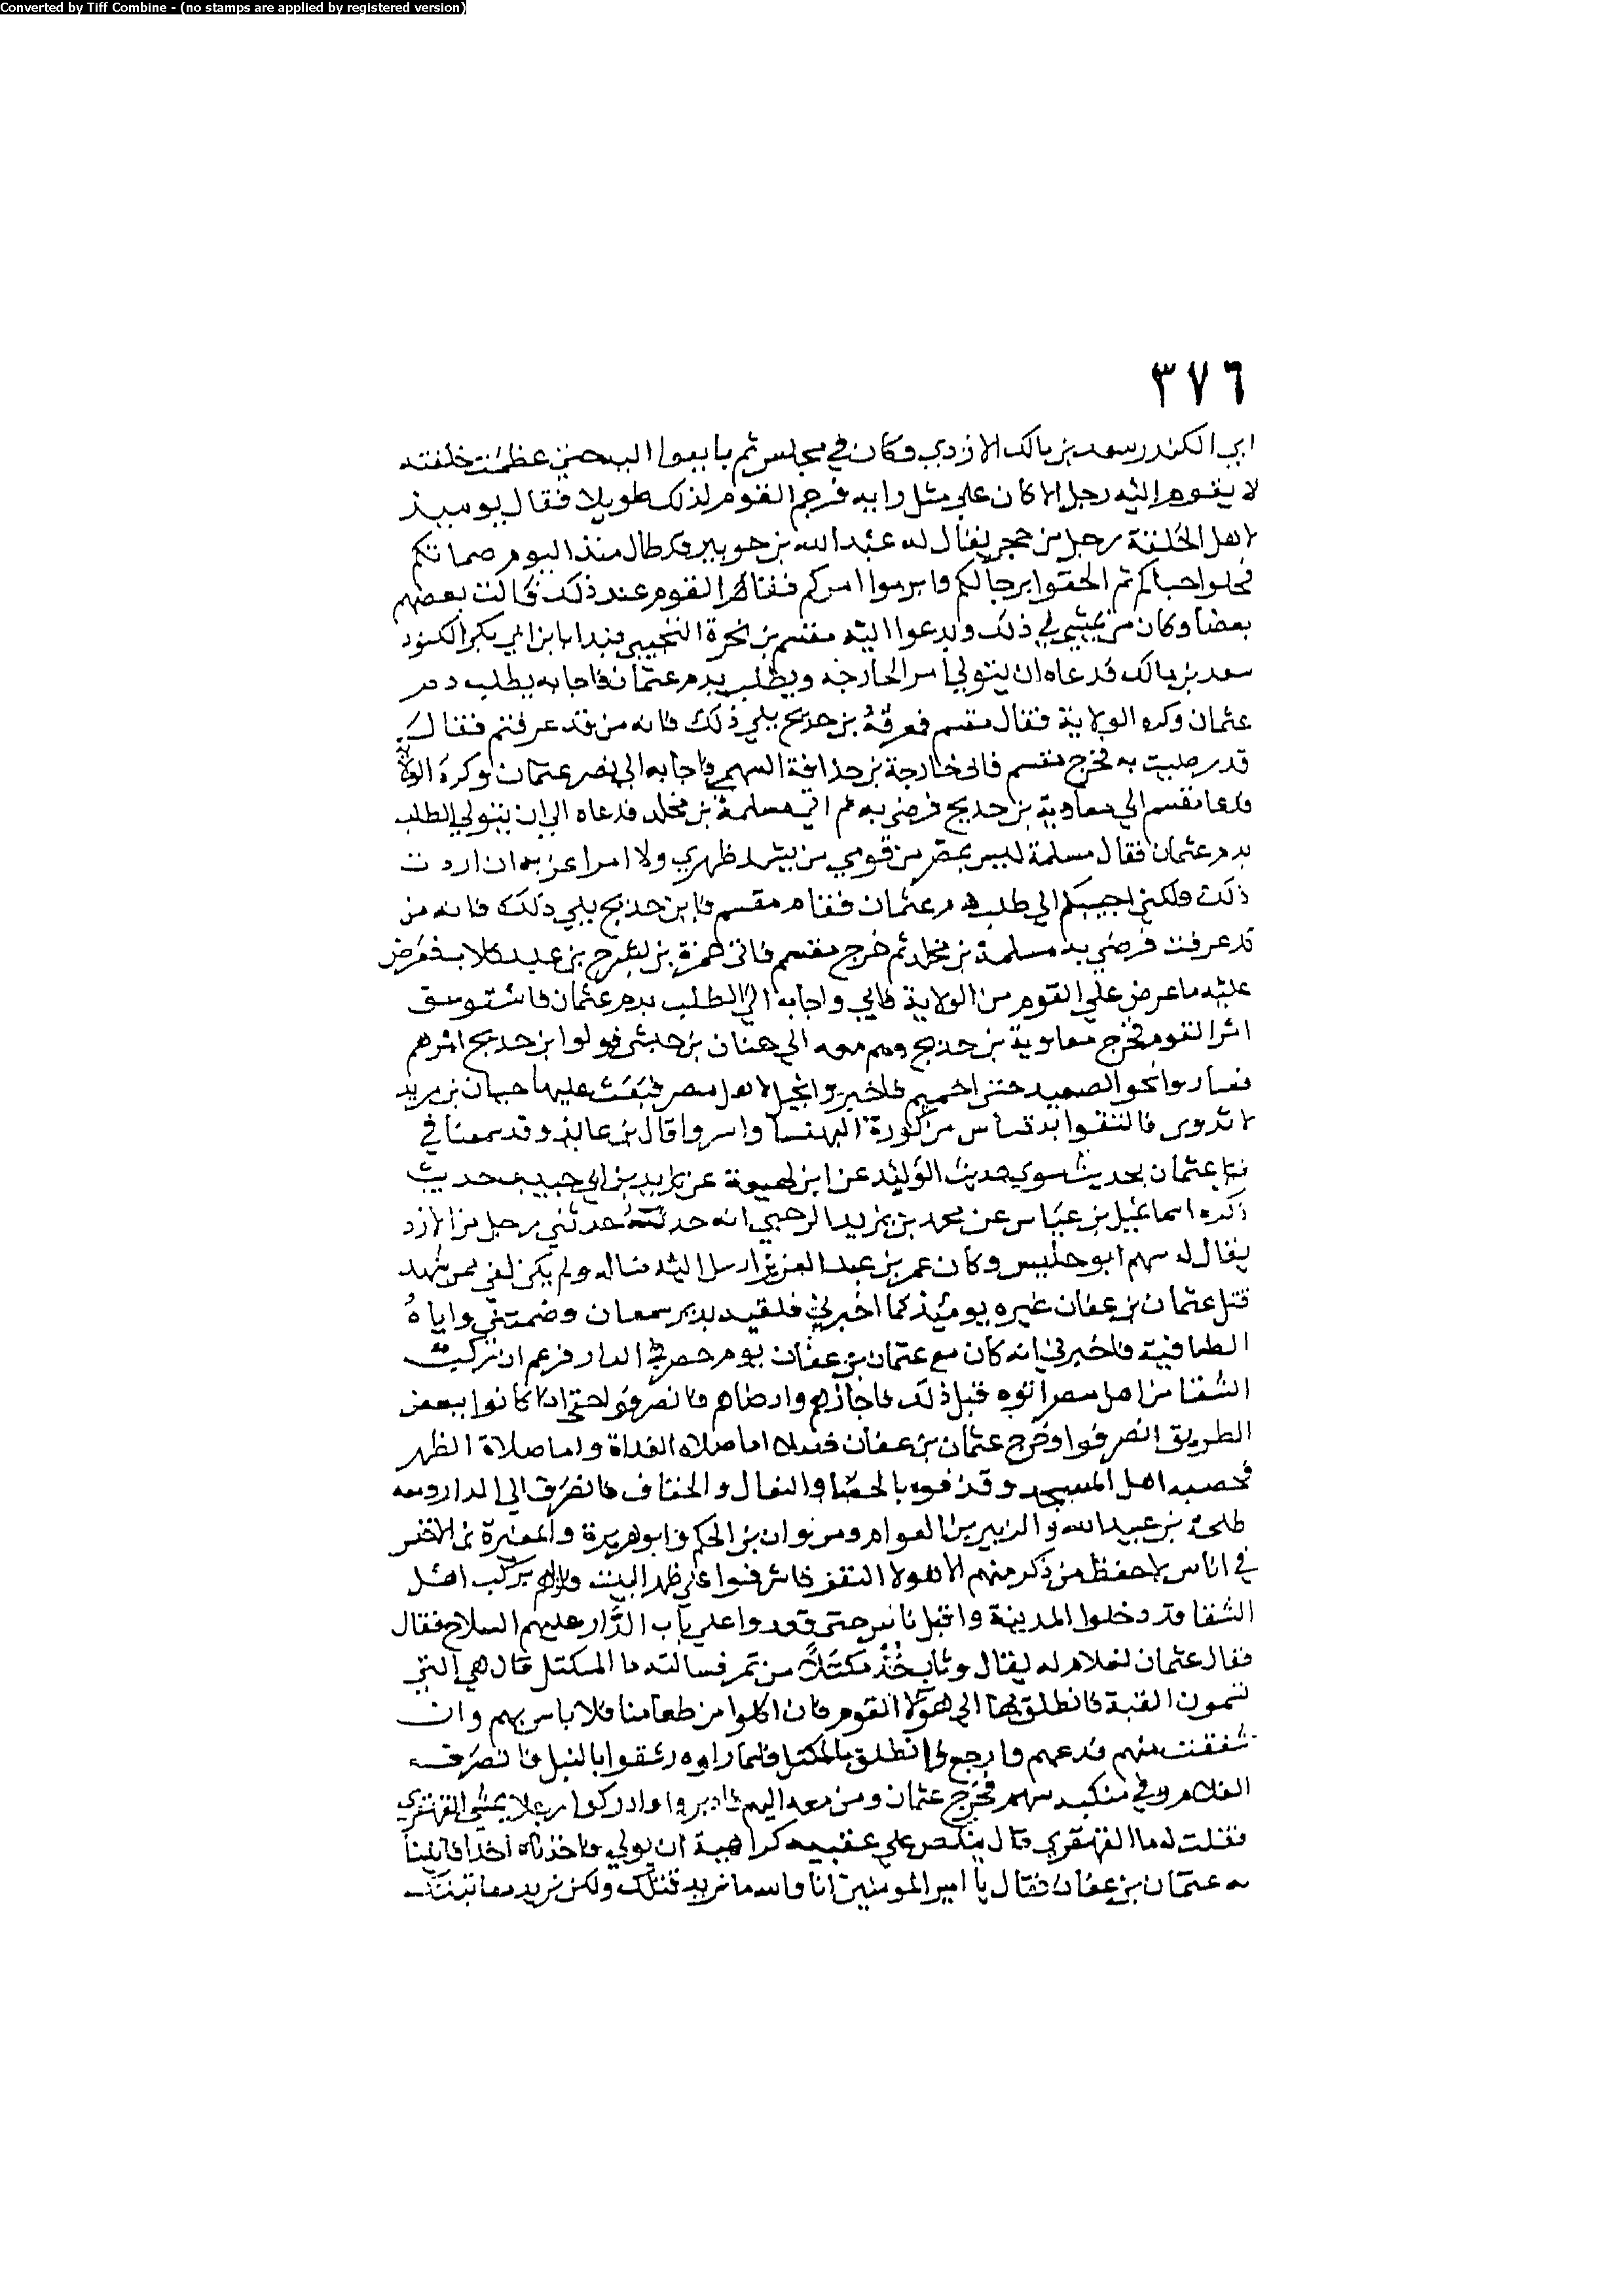 Converted by Tiff Combine - (no stamps are applied by registered version)
٣٧٦
ابي الكنود سعد بن مالك الازدي وكان في مجلس ثم بايعوا اليه حتى عظمت حلقته
لا يقوم اليه رجل الا كان على مثل رايه فرجم القوم لذلك طويلا فقال يوميذ
لاهل الحلقة رجل من حجر يقال له عبد الله بن حوبير قد طال منذ اليوم صماتكم
فحلوا حباكم ثم الحقوا برجالكم فابرموا امركم فقام القوم عند ذلك بعضهم
بعضا وكان من يمشي في ذلك ويدعوا اليه مقسم بن بجرة التجيبي فبدا بابي الكنود
سعد بن مالك فدعاه ان يتولى امر الخارجه ويطلب بدم عثمان فاجابه بطلب دم
عثمان وكره الولاية فقال مقسم بن حديج يلي ذلك فانه من قد عرفتم فقال
قد رضيت به فخرج مقسم فاتى خارجة بن حذافة السهمي فاجابه الى نصر عثمان وكره الولاية
فدعا مقسم الي معاوية بن حديج فرضي به ثم اتي مسلمة بن مخلد فدعاه الي ان يتولي الطلب
بدم عثمان فقال مسلمة ليس بمصر من قومي من يشد ظهري ولا امرا عزيمان اردت
ذلك ولكني اجيبكم الي طلب دم عثمان فقام مقسم فابن حديج يلي ذلك فانه من
قد عرفت فرضي به مسلمة بن مخلد ثم خرج مقسم فاتى حمزة بن بن عبد كلا به فعرض
عليه ما عرض علي القوم من الولاية فابي واجابه الي الطلب بدم عثمان فاستوسق
امر القوم فخرج معاوية بن حديج وهم معه الي هنان بن حبشي فولوا ابن حديج امرهم
فساروا نحو الصعيد حتى اخميم لاهل مصر فبعث عليها حبان بن مريد
لابدوى فالتقوا بدقناس من كورة البهنسا واسروا قال بن عايذ وقد سمعنا في
عثمان بحديث سوي حديث الوليد عن ابن لهيعة عن يزيد بن ابي حبيب حديث
ذكره اسماعيل بن عياش عن محمد بن يزيد الرحبي انه حدثه حدثني رجل من الازد
يقال له سهم ابو حليس وكان عمر بن عبد العزيز ارسل اليه فساله ولم يكن لقي ممن شهد
قتل عثمان بن عفان غيره يوميذ كما اخبرني فلقيه بدير سمعان وضمتني واياه
الطافية فاخبرني انه كان مع عثمان بن عفان يوم حصر في الدار فزعم ان ركب
الشقا من اهل مصر اتوه قبل ذلك فاجازهم وارضاهم فانصرفوا حتى اذا كانوا ببعض
الطريق انصرفوا وخرج عثمان بن عفان فصلى اما صلاة الغداة واما صلاة الظهر
فحصبه اهل المسجد وقذفوه بالحصا والنعال والخفاف فانصرف الي الدار ومعه
طلحة بن عبيد الله والزبير بن العوام ومروان بن الحكم وابو هريرة والمغيرة بن الاخنس
في اناس لا احفظ من ذكر منهم الا هولا النفر فاشرفوا علي ظهر البيت فاذا هم بركب اهل
الشقا قد دخلوا المدينة واقبل ناس حتى قعدوا علي باب الدار عليهم السلاح فقال
فقال عثمان لغلام له يقال وثاب خذ مكتلا من تمر فسالته ما المكتل قال هي التي
تسمون القبة فانطلق بها الي هؤلا القوم فان اكلوا من طعامنا فلا باس بهم وان
شفقت منهم فدعهم وارجع فانطلق بالمكتل فلما راوه رشقوا بالنبل فانصرف
الغلام وفي منكبه سهم فخرج عثمان ومن معه اليهم فادبروا وادركوا رجلا يمشي القهقري
فقلت له ما القهقري قال ينكص علي عقبيه كراهية ان يولي فاخذناه اخذا فاتينا
به عثمان بن عفان فقال يا امير المومنين انا والله ما نريد قتلك ولكن نريد معاتبتك